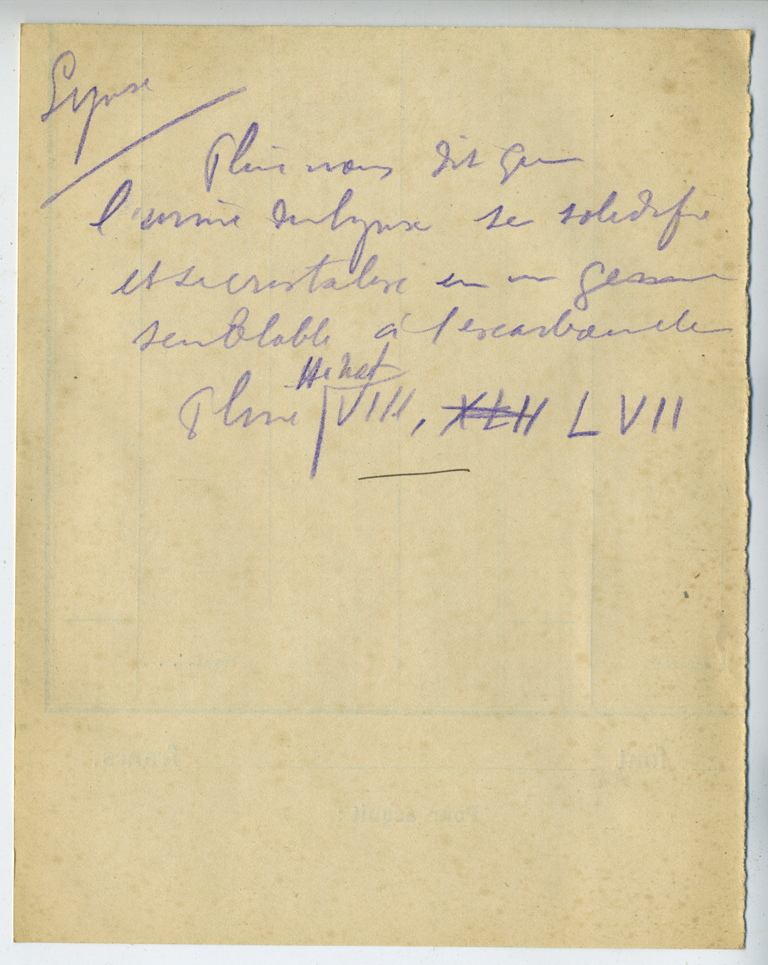 Lynx
Pline nous dit que
l'urine du lynx se solidifie
et se cristalise en un gemme
semblable à l'escarboucle
H. nat
Pline VIII, XLII LVII
Pour acquit :